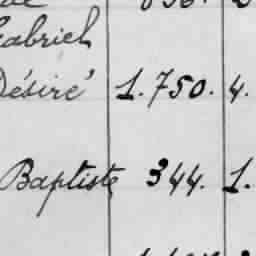 Gabriel
Désiré 1.750. 4.
Baptiste 344. 1.